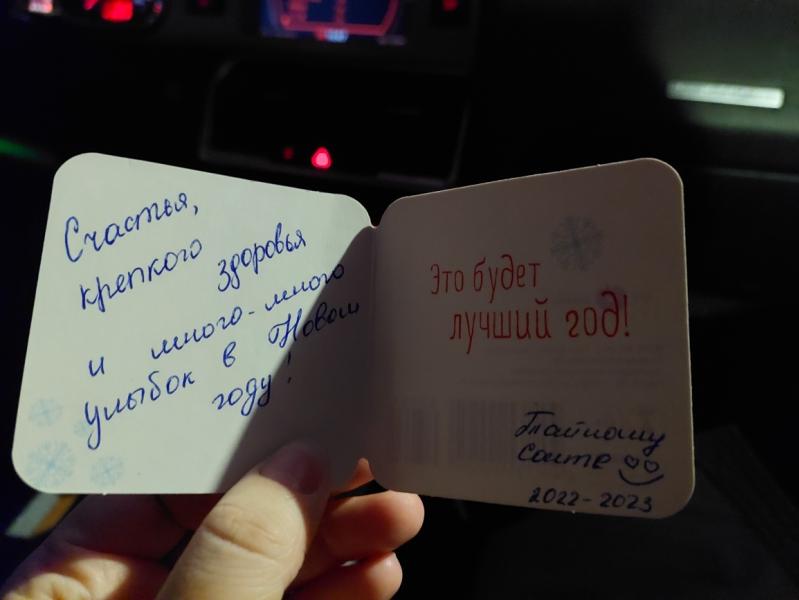 Счастья,
крепкого здоровья
и много-много
улыбок в Новом
году!
Это будет
лучший год!
Тайному
Санте
2022-2023